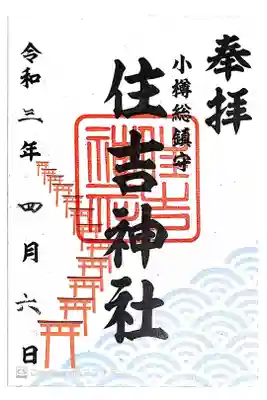 奉拝
小樽総鎮守
住吉神社
令和三年四月六日